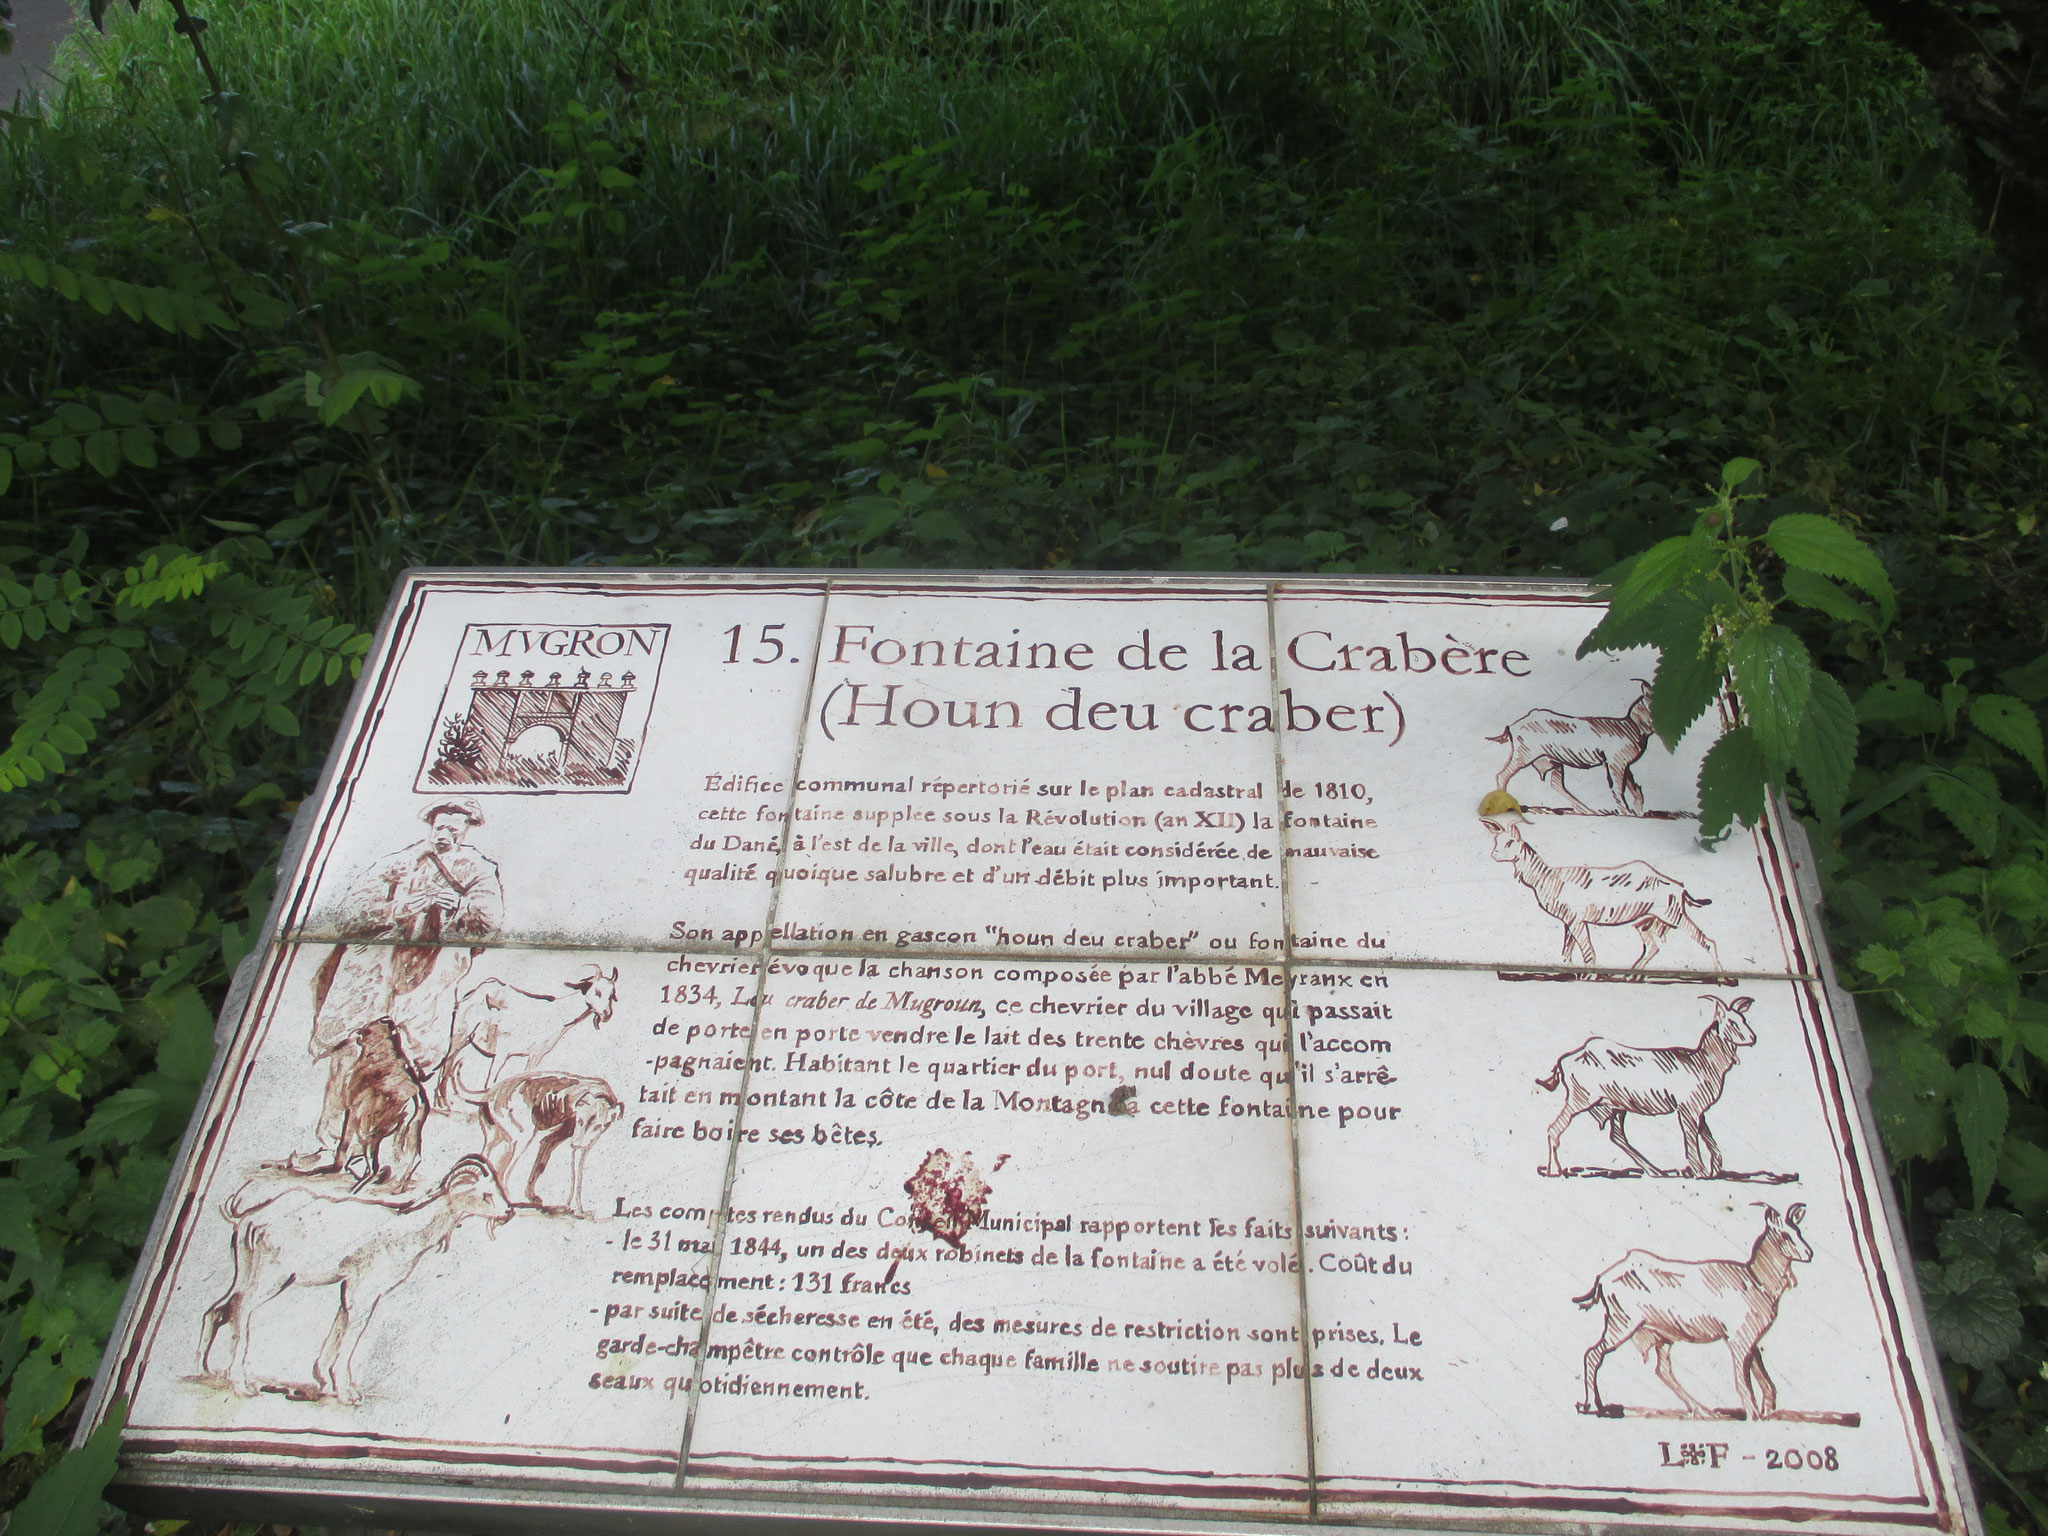 MVGRON
15. Fontaine de la Crabère
(Houn deu craber)
Édifice communal répertorié sur le plan cadastral de 1810,
cette fontaine supplée sous la Révolution (an XII) la fontaine
du Dané, à l'est de la ville, dont l'eau était considérée de mauvaise
qualité quoique salubre et d'un débit plus important.
Son appellation en gascon "houn deu craber" ou fontaine du
chevrier évoque la chanson composée par l'abbé Meyranx en
1834, Lou craber de Mugroun, ce chevrier du village qui passait
de porte en porte vendre le lait des trente chèvres qui l'accom
-pagnaient. Habitant le quartier du port, nul doute qu'il s'arrê-
tait en montant la côte de la Montagne à cette fontaine pour
faire boire ses bêtes.
Les comptes rendus du Conseil Municipal rapportent les faits suivants :
- le 31 mai 1844, un des deux robinets de la fontaine a été volé. Coût du
remplacement : 131 francs
- par suite de sécheresse en été, des mesures de restriction sont prises. Le
garde-champêtre contrôle que chaque famille ne soutire pas plus de deux
seaux quotidiennement.
L F - 2008